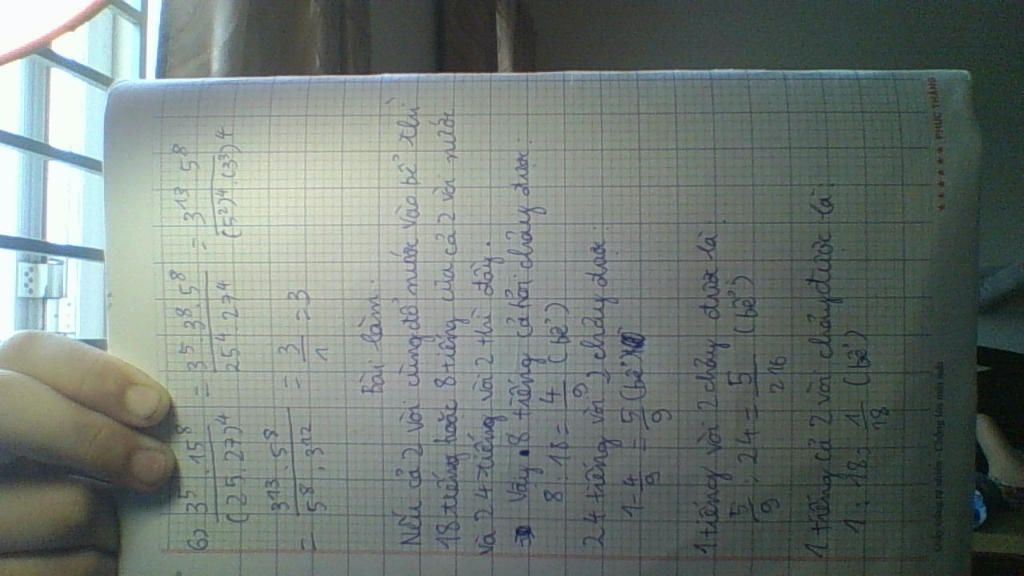 6) 3^5 . 15^8 / (25 . 27)^4 = 3^5 . 3^8 . 5^8 / 25^4 . 27^4 = 3^13 5^8 / (5^2)^4 . (3^3)^4
= 3^13 . 5^8 / 5^8 . 3^12 = 3/1 = 3
Bài làm:
Nếu cả 2 vòi cùng đổ nước vào bể thì
18 tiếng hoặc 8 tiếng của cả 2 vòi nước
và 24 tiếng vòi 2 thì đầy.
Vậy 8 tiếng cả hai chảy được:
8 : 18 = 4/9 (bể)
24 tiếng vòi 2 chảy được:
1 - 4/9 = 5/9 (bể)
1 tiếng vòi 2 chảy được là
5/9 : 24 = 5/216 (bể)
1 tiếng cả 2 vòi chảy được là:
1 : 18 = 1/18 (bể)
★ ★ ★ ★ ★ ★ PHÚC THẮNG